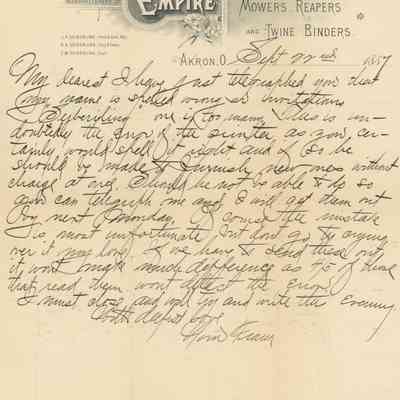 EMPIRE
MOWERS, REAPERS
AND TWINE BINDERS.
AKRON, O. Sept 22nd, 1887
My dearest I have just telegraphed you that
my name is spelled wrong in invitations
one is too many this is un-
doubtedly the error of the printer as you cer-
tainly would spell it right and if so he
should be made to furnish new ones without
charge at once. Should he not be able to do so
you can telegraph me and I will get them out
by next Monday. Of course the mistake
is most unfortunate but don't go to crying
over it my love. If we have to send these out
it won't make much difference as 9/10 of those
that read them won't detect the error.
I must close and will try and write this evening
With deepest love